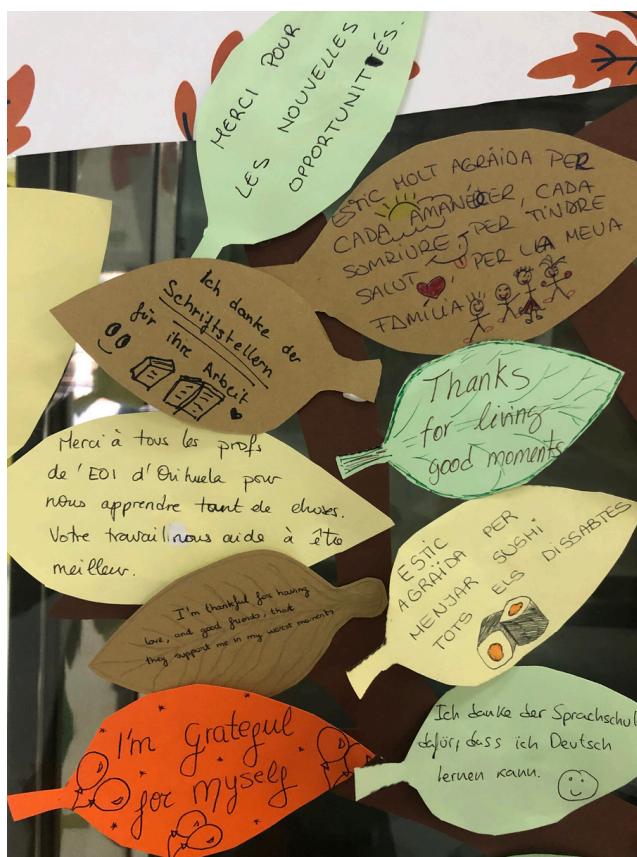 MERCI POUR
LES NOUVELLES
OPPORTUNITÉS.
ESTIC MOLT AGRÁIDA PER
CADA AMANÉCER, CADA
SOMRIURE, PER TINDRE
SALUT, PER LA MEUA
FAMÍLIA
Ich danke der
Schriftstellern
für ihre Arbeit
Thanks
for living
good moments
Merci à tous les profs
de l'EOI d'Orihuela pour
nous apprendre tant de choses.
Votre travail nous aide à être
meilleur.
ESTIC PER
AGRAÏDA
MENJAR SUSHI
TOTS ELS DISSABTES
I'm thankful for having
love, and good friends, that
they support me in my worst moments
I'm grateful
for myself
Ich danke der Sprachschul
dafür, dass ich Deutsch
lernen kann.